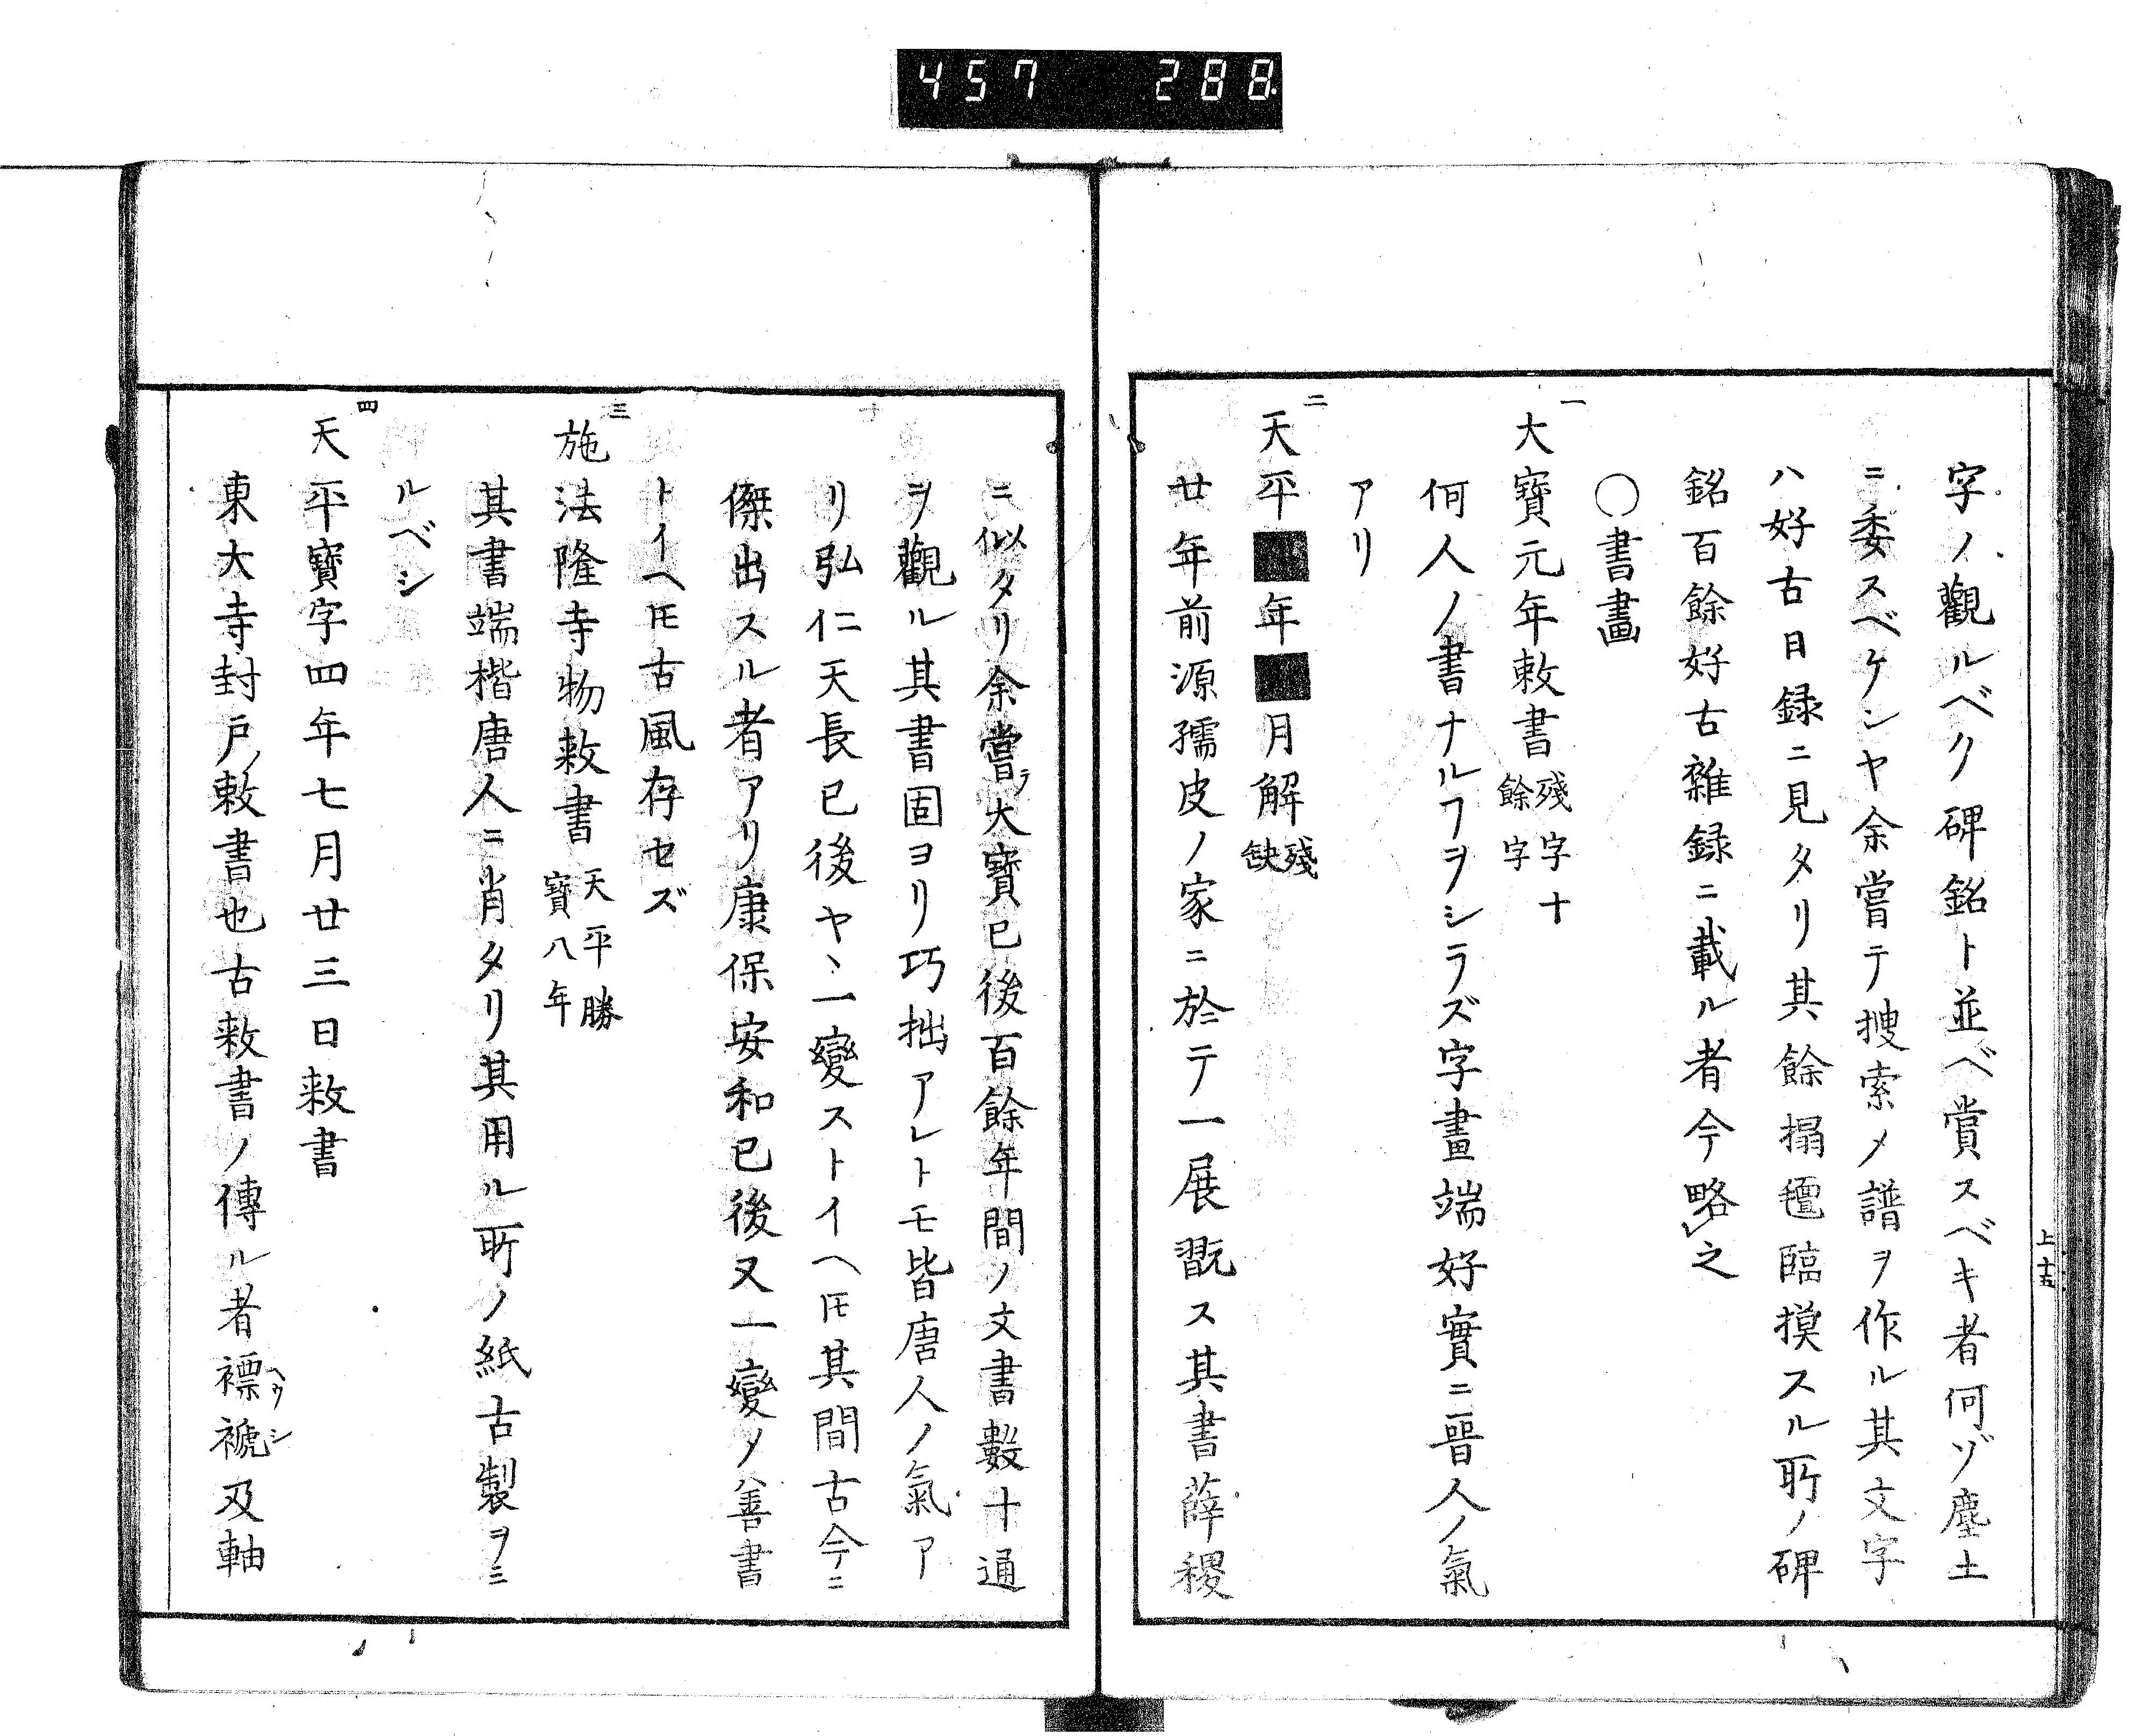 457 288
上 十五
字ノ觀ルベク碑銘ト並ベ賞スベキ者何ゾ塵土
ニ委スベケンヤ余嘗テ捜索〆譜ヲ作ル其文字
ハ好古日録ニ見タリ其餘搨氊臨摸スル所ノ碑
銘百餘好古雜録ニ載ル者今略㆑之
〇書畫
一
大寶元年敕書 殘字十
餘字
何人ノ書ナルヿヲシラズ字畫端好實ニ晉人ノ氣
アリ
二
天平■年■月解 殘
缺
廿年前源孺皮ノ家ニ於テ一展翫ス其書薛稷
ニ似タリ余嘗テ大寶已後百餘年間ノ文書數十通
ヲ觀ル其書固ヨリ巧拙アレトモ皆唐人ノ氣ア
リ弘仁天長已後ヤヽ一變ストイヘ𪜈其間古今ニ
傑出スル者アリ康保安和已後又一變〆善書
トイヘ𪜈古風存セズ
三
施法隆寺物敕書 天平勝
寶八年
其書端楷唐人ニ肖タリ其用ル所ノ紙古製ヲミ
ルベシ
四
天平寶字四年七月廿三日敕書
東大寺封戸ノ敕書也古敕書ノ傳ル者褾褫及軸
ヘウシ